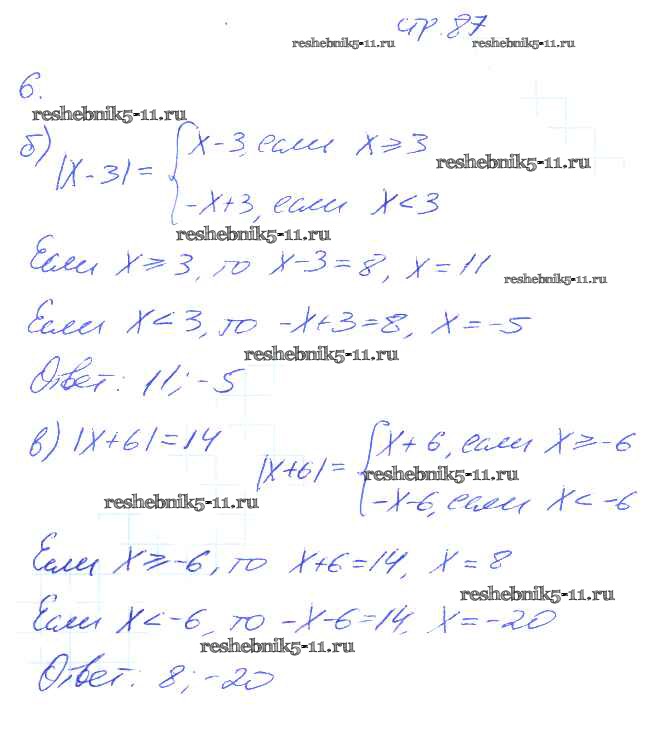 стр. 87
reshebnik5-11.ru reshebnik5-11.ru
6.
reshebnik5-11.ru
б) |x-3| = { x-3, если x ≥ 3
reshebnik5-11.ru
-x+3, если x < 3
reshebnik5-11.ru
Если x ≥ 3, то x-3=8, x=11
reshebnik5-11.ru
Если x < 3, то -x+3=8, x=-5
reshebnik5-11.ru
Ответ: 11; -5
в) |x+6|=14 |x+6|= { x+6, если x ≥ -6
reshebnik5-11.ru
-x-6, если x < -6
reshebnik5-11.ru
Если x ≥ -6, то x+6=14, x=8
reshebnik5-11.ru
Если x < -6, то -x-6=14, x=-20
reshebnik5-11.ru
Ответ: 8; -20